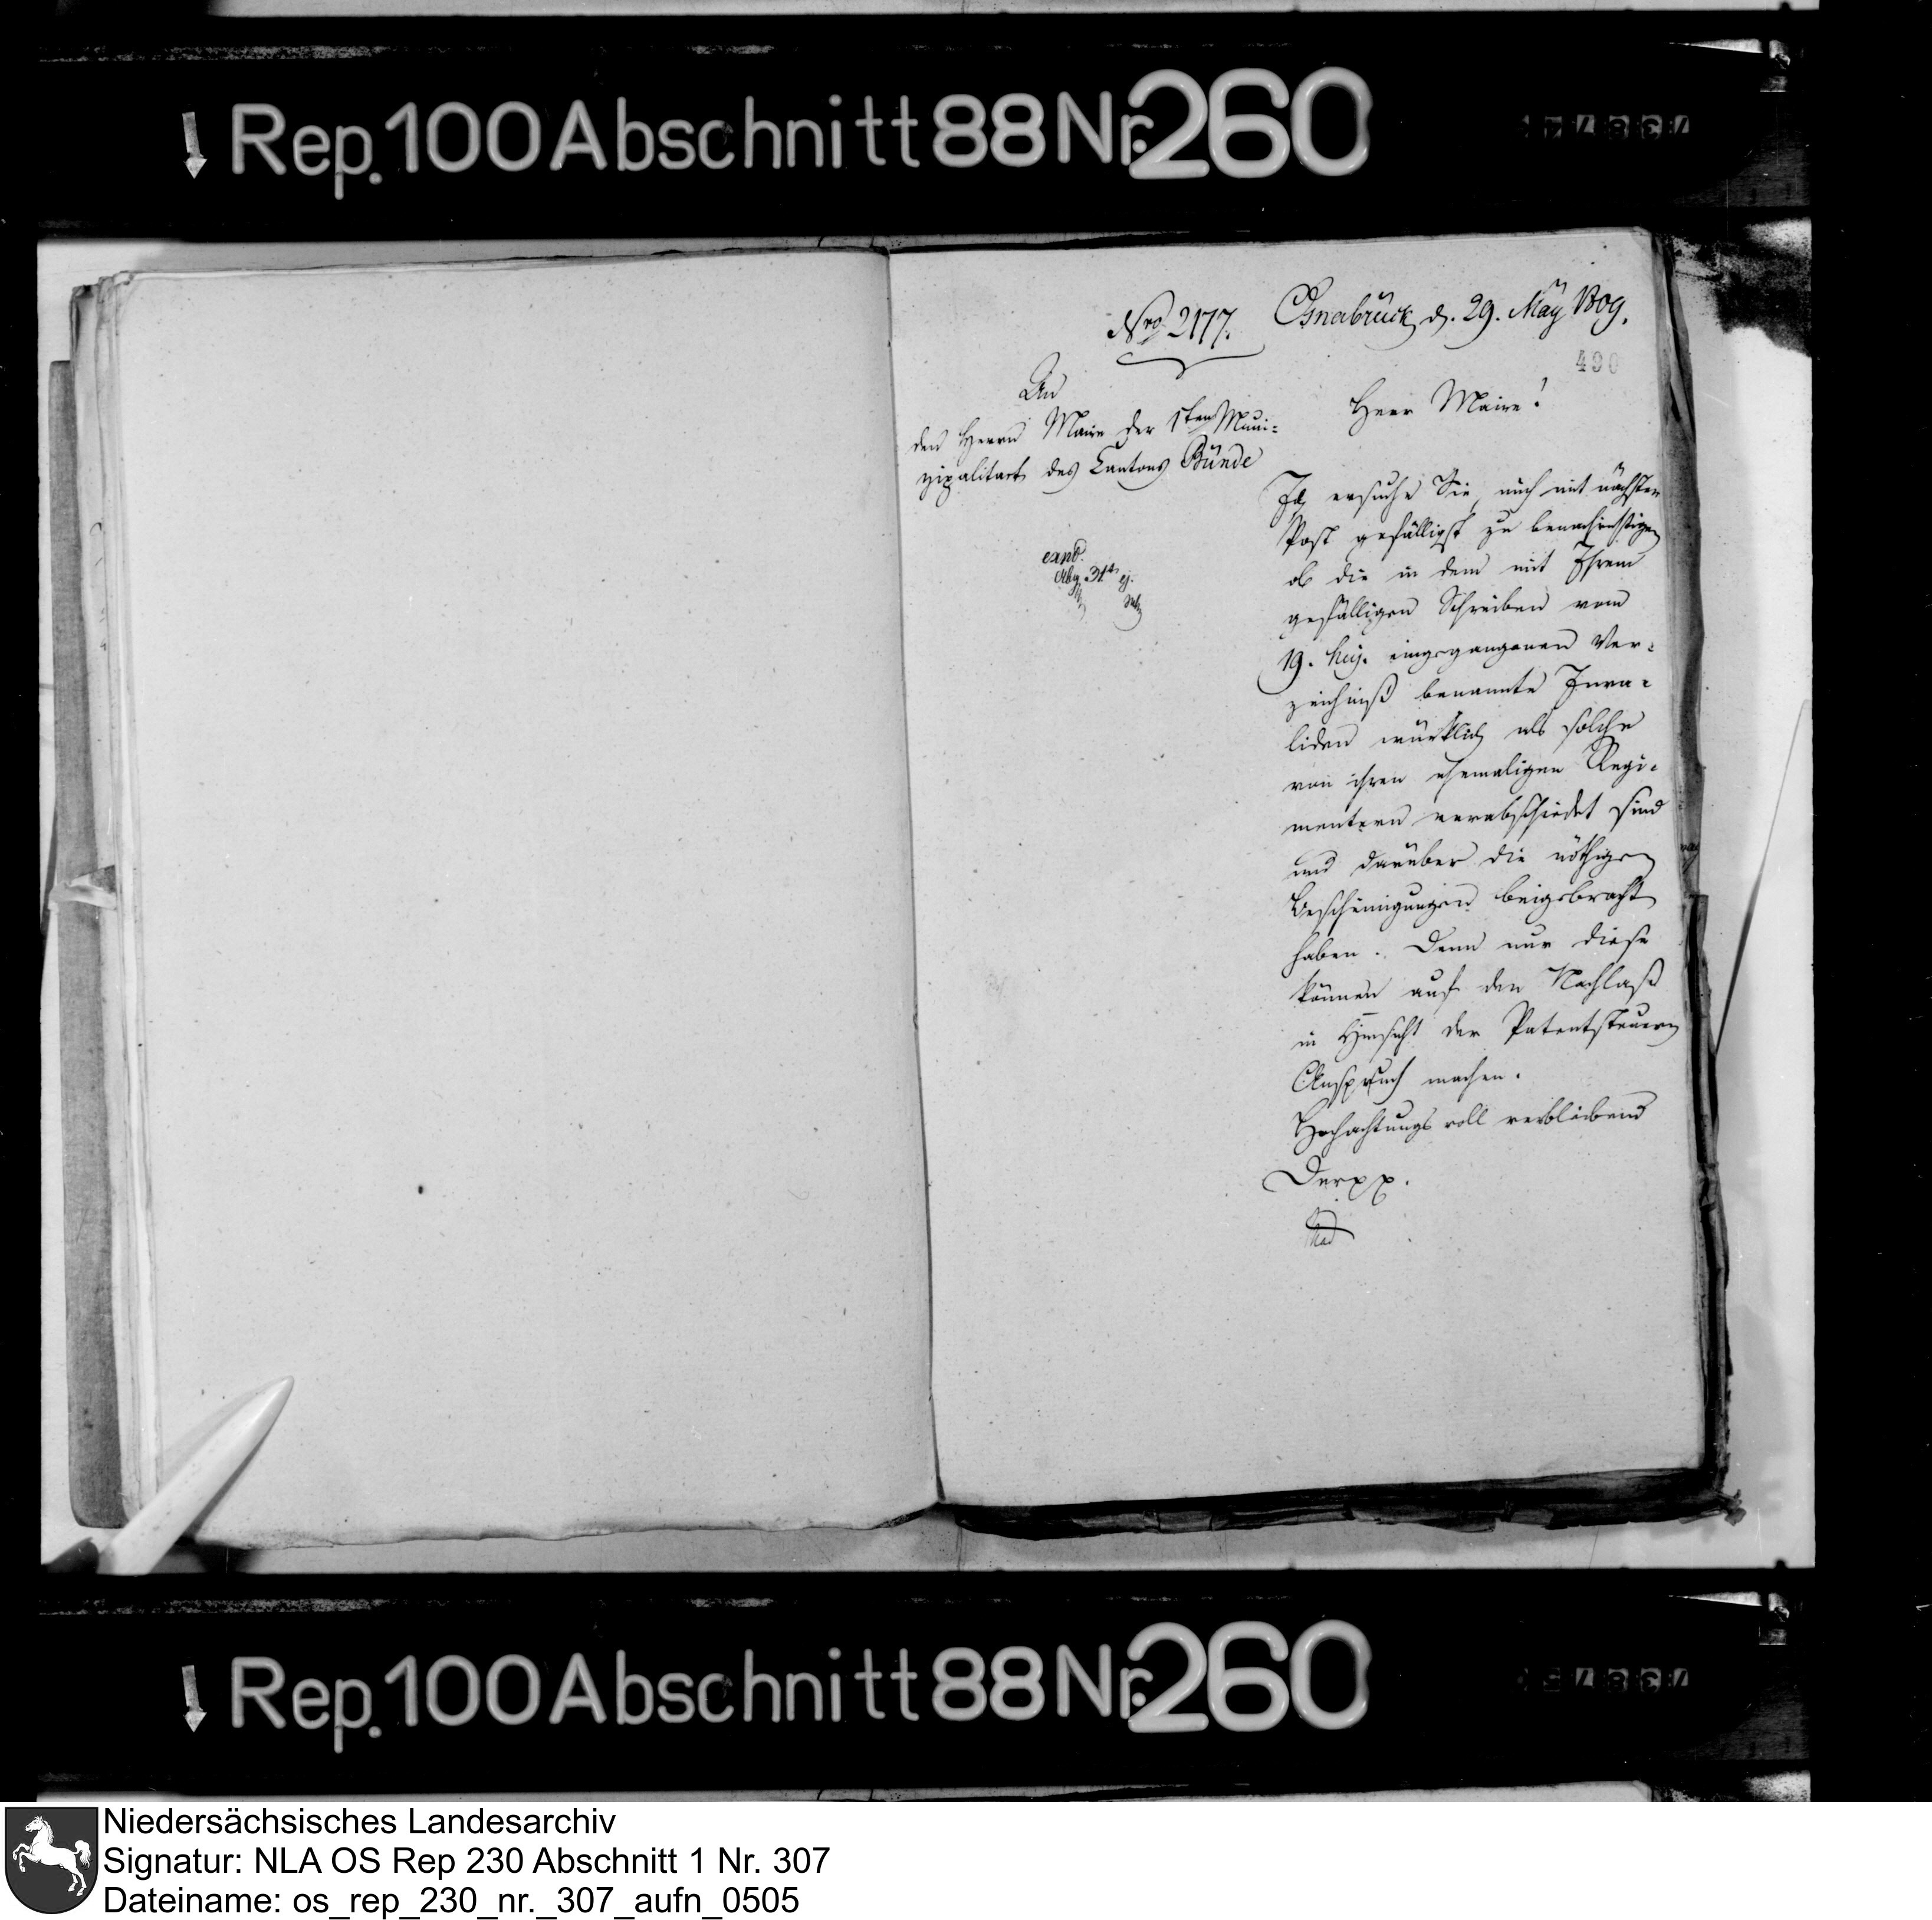 Rep. 100 Abschnitt 88 Nr. 260
Nro 2177. Osnabrück d. 29. May 1809.
490
An
den Herrn Maire der 1ten Muni-
zipalitaet des Cantons Bünde
expd.
Abg. 31t ej.
Herr Maire!
Ich ersuche Sie, mich mit nächster
Post gefälligst zu benachrichtigen
ob die in dem mit Ihrem
gefälligen Schreiben vom
19. huj. eingegangenen Ver-
zeichniß benannte Inva-
liden würklich als solche
von ihren ehemaligen Regi-
mentern verabschiedet sind
und darüber die nöthigen
Bescheinigungen beigebracht
haben. Denn nur diese
können auf den Nachlaß
in Hinsicht der Patentsteuern
Anspruch machen.
Hochachtungsvoll verbleibend
Der pp.
Rep. 100 Abschnitt 88 Nr. 260
Niedersächsisches Landesarchiv
Signatur: NLA OS Rep 230 Abschnitt 1 Nr. 307
Dateiname: os_rep_230_nr._307_aufn_0505